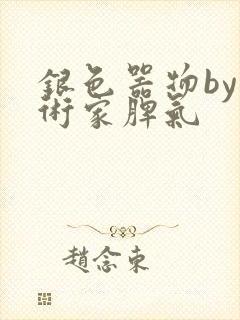 銀色器物by
術家脾氣
趙念東